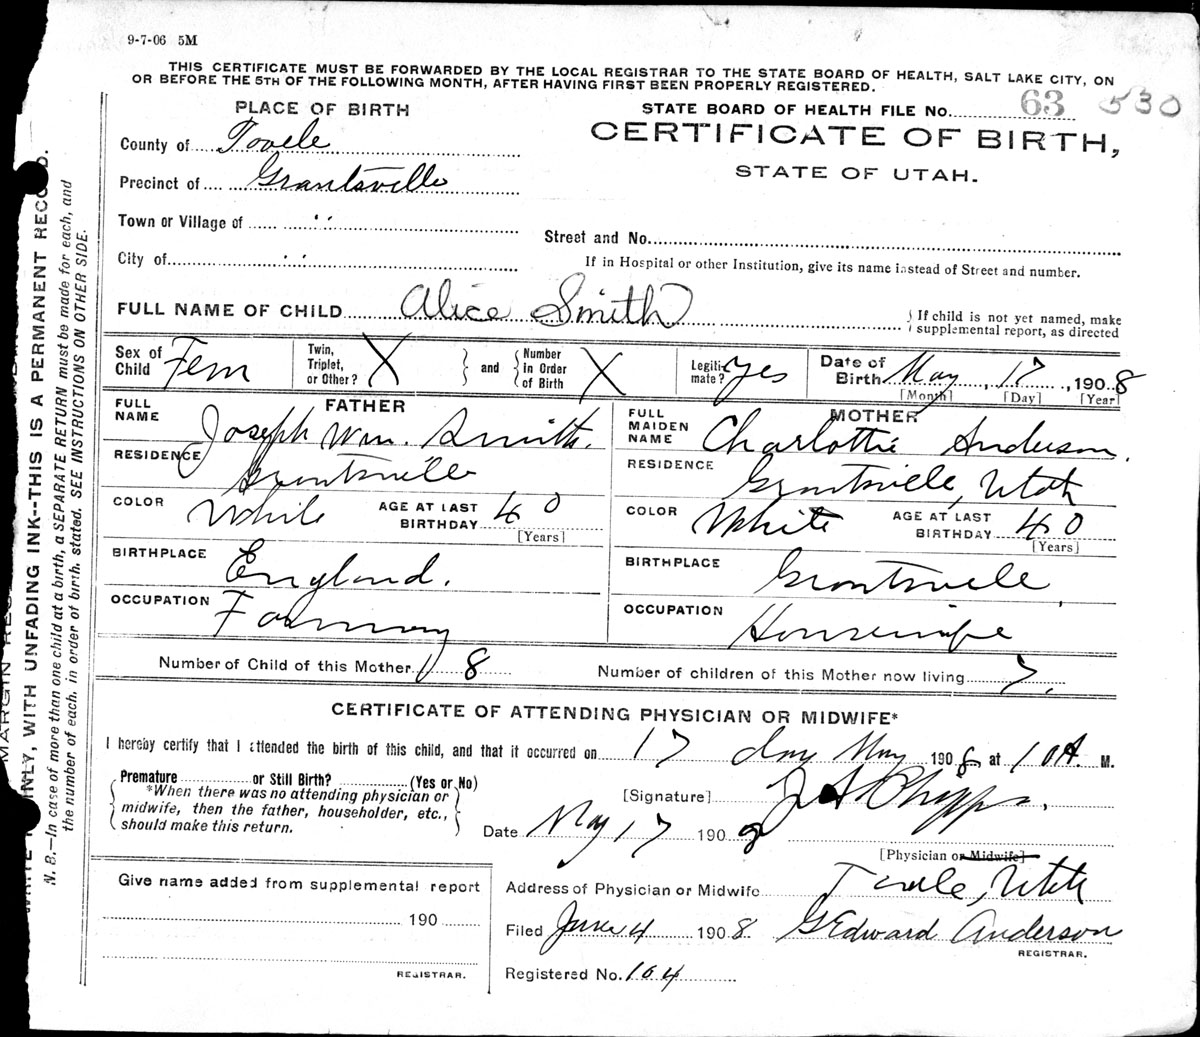 9-7-06 5M
THIS CERTIFICATE MUST BE FORWARDED BY THE LOCAL REGISTRAR TO THE STATE BOARD OF HEALTH, SALT LAKE CITY, ON
OR BEFORE THE 5TH OF THE FOLLOWING MONTH, AFTER HAVING FIRST BEEN PROPERLY REGISTERED.
PLACE OF BIRTH
STATE BOARD OF HEALTH FILE No. 63 530
County of Tooele
CERTIFICATE OF BIRTH,
Precinct of Grantsville
STATE OF UTAH.
Town or Village of " "
Street and No.
City of " "
If in Hospital or other Institution, give its name instead of Street and number.
FULL NAME OF CHILD Alice Smith
{ If child is not yet named, make
supplemental report, as directed
Sex of Child Fem
Twin, Triplet, or Other? X
and
Number in Order of Birth X
Legitimate? Yes
Date of Birth May 17, 1908
[Month] [Day] [Year]
FATHER
FULL NAME Joseph Wm. Smith.
RESIDENCE Grantsville
COLOR White AGE AT LAST BIRTHDAY 40
[Years]
BIRTHPLACE England.
OCCUPATION Farming
MOTHER
FULL MAIDEN NAME Charlottie Anderson.
RESIDENCE Grantsville, Utah
COLOR White AGE AT LAST BIRTHDAY 40
[Years]
BIRTHPLACE Grantsville,
OCCUPATION Housewife
Number of Child of this Mother 8
Number of children of this Mother now living 7.
CERTIFICATE OF ATTENDING PHYSICIAN OR MIDWIFE*
I hereby certify that I attended the birth of this child, and that it occurred on 17 day May 1908 at 10 A. M.
Premature or Still Birth? (Yes or No)
*When there was no attending physician or
midwife, then the father, householder, etc.,
should make this return.
[Signature] Phipps.
Date May 17 1908
[Physician or Midwife]
Give name added from supplemental report
190
REGISTRAR.
Address of Physician or Midwife Tooele, Utah
Filed June 4 1908 G Edward Anderson
REGISTRAR.
Registered No. 104
N. B.—In case of more than one child at a birth, a SEPARATE RETURN must be made for each, and
the number of each, in order of birth, stated. SEE INSTRUCTIONS ON OTHER SIDE.
WITH UNFADING INK--THIS IS A PERMANENT RECORD.
MARGIN